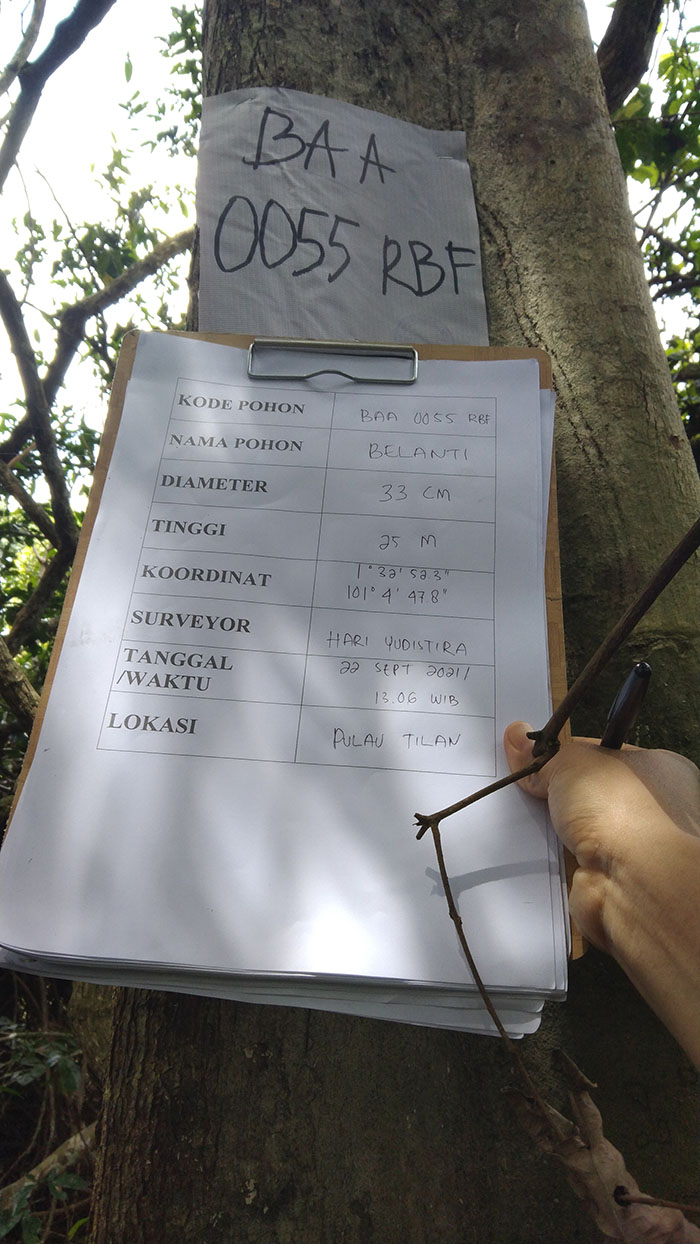 BAA
0055 RBF
KODE POHON BAA 0055 RBF
NAMA POHON BELANTI
DIAMETER 33 CM
TINGGI 25 M
KOORDINAT 1°32'52.3"
101°4'47.8"
SURVEYOR HARI YUDISTIRA
TANGGAL 22 SEPT 2021/
/WAKTU 13.06 WIB
LOKASI PULAU TILAN